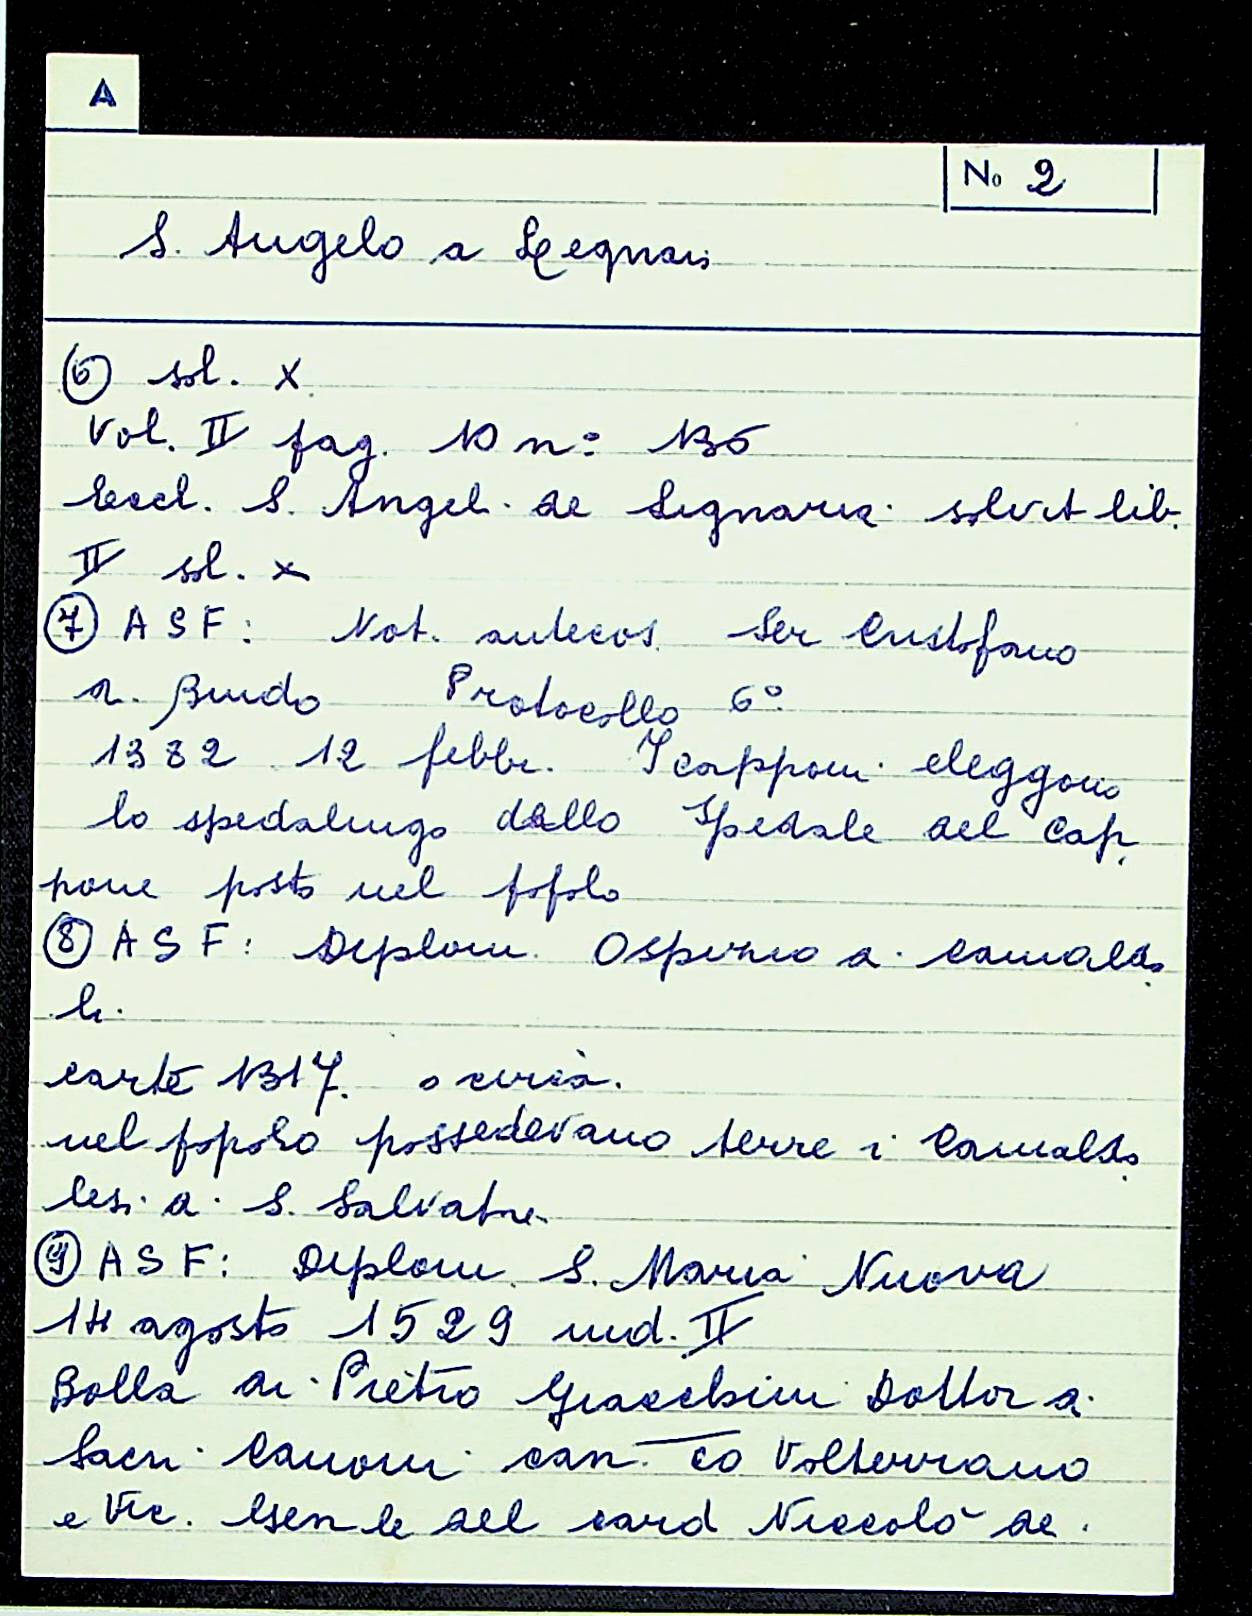 A
No 2
S. Angelo a Legnaia
⑥ sol. X
Vol. II pag. 10 n: 136
Eccl. S. Angel. de Lignaria solvit lib.
II sol. X
⑦ ASF: Not. antecos. Ser Cristofano
di Bindo Protocollo 6º
1382 12 febbr. I capponi eleggono
lo spedalingo dello Spedale del Cap
pone posto nel popolo
⑧ ASF: Diplom. Ospizio di Camaldo
li.
carte 1317. o circa.
nel popolo possedevano terre i Camaldo
lesi di S. Salvatore
⑨ ASF: Diplom. S. Maria Nuova
14 agosto 1529 ind. II
Bolla di Pietro Giacchini Dottor di
Sacri Canoni can.co Volterrano
e Vic. Gen.le del card Niccolò de